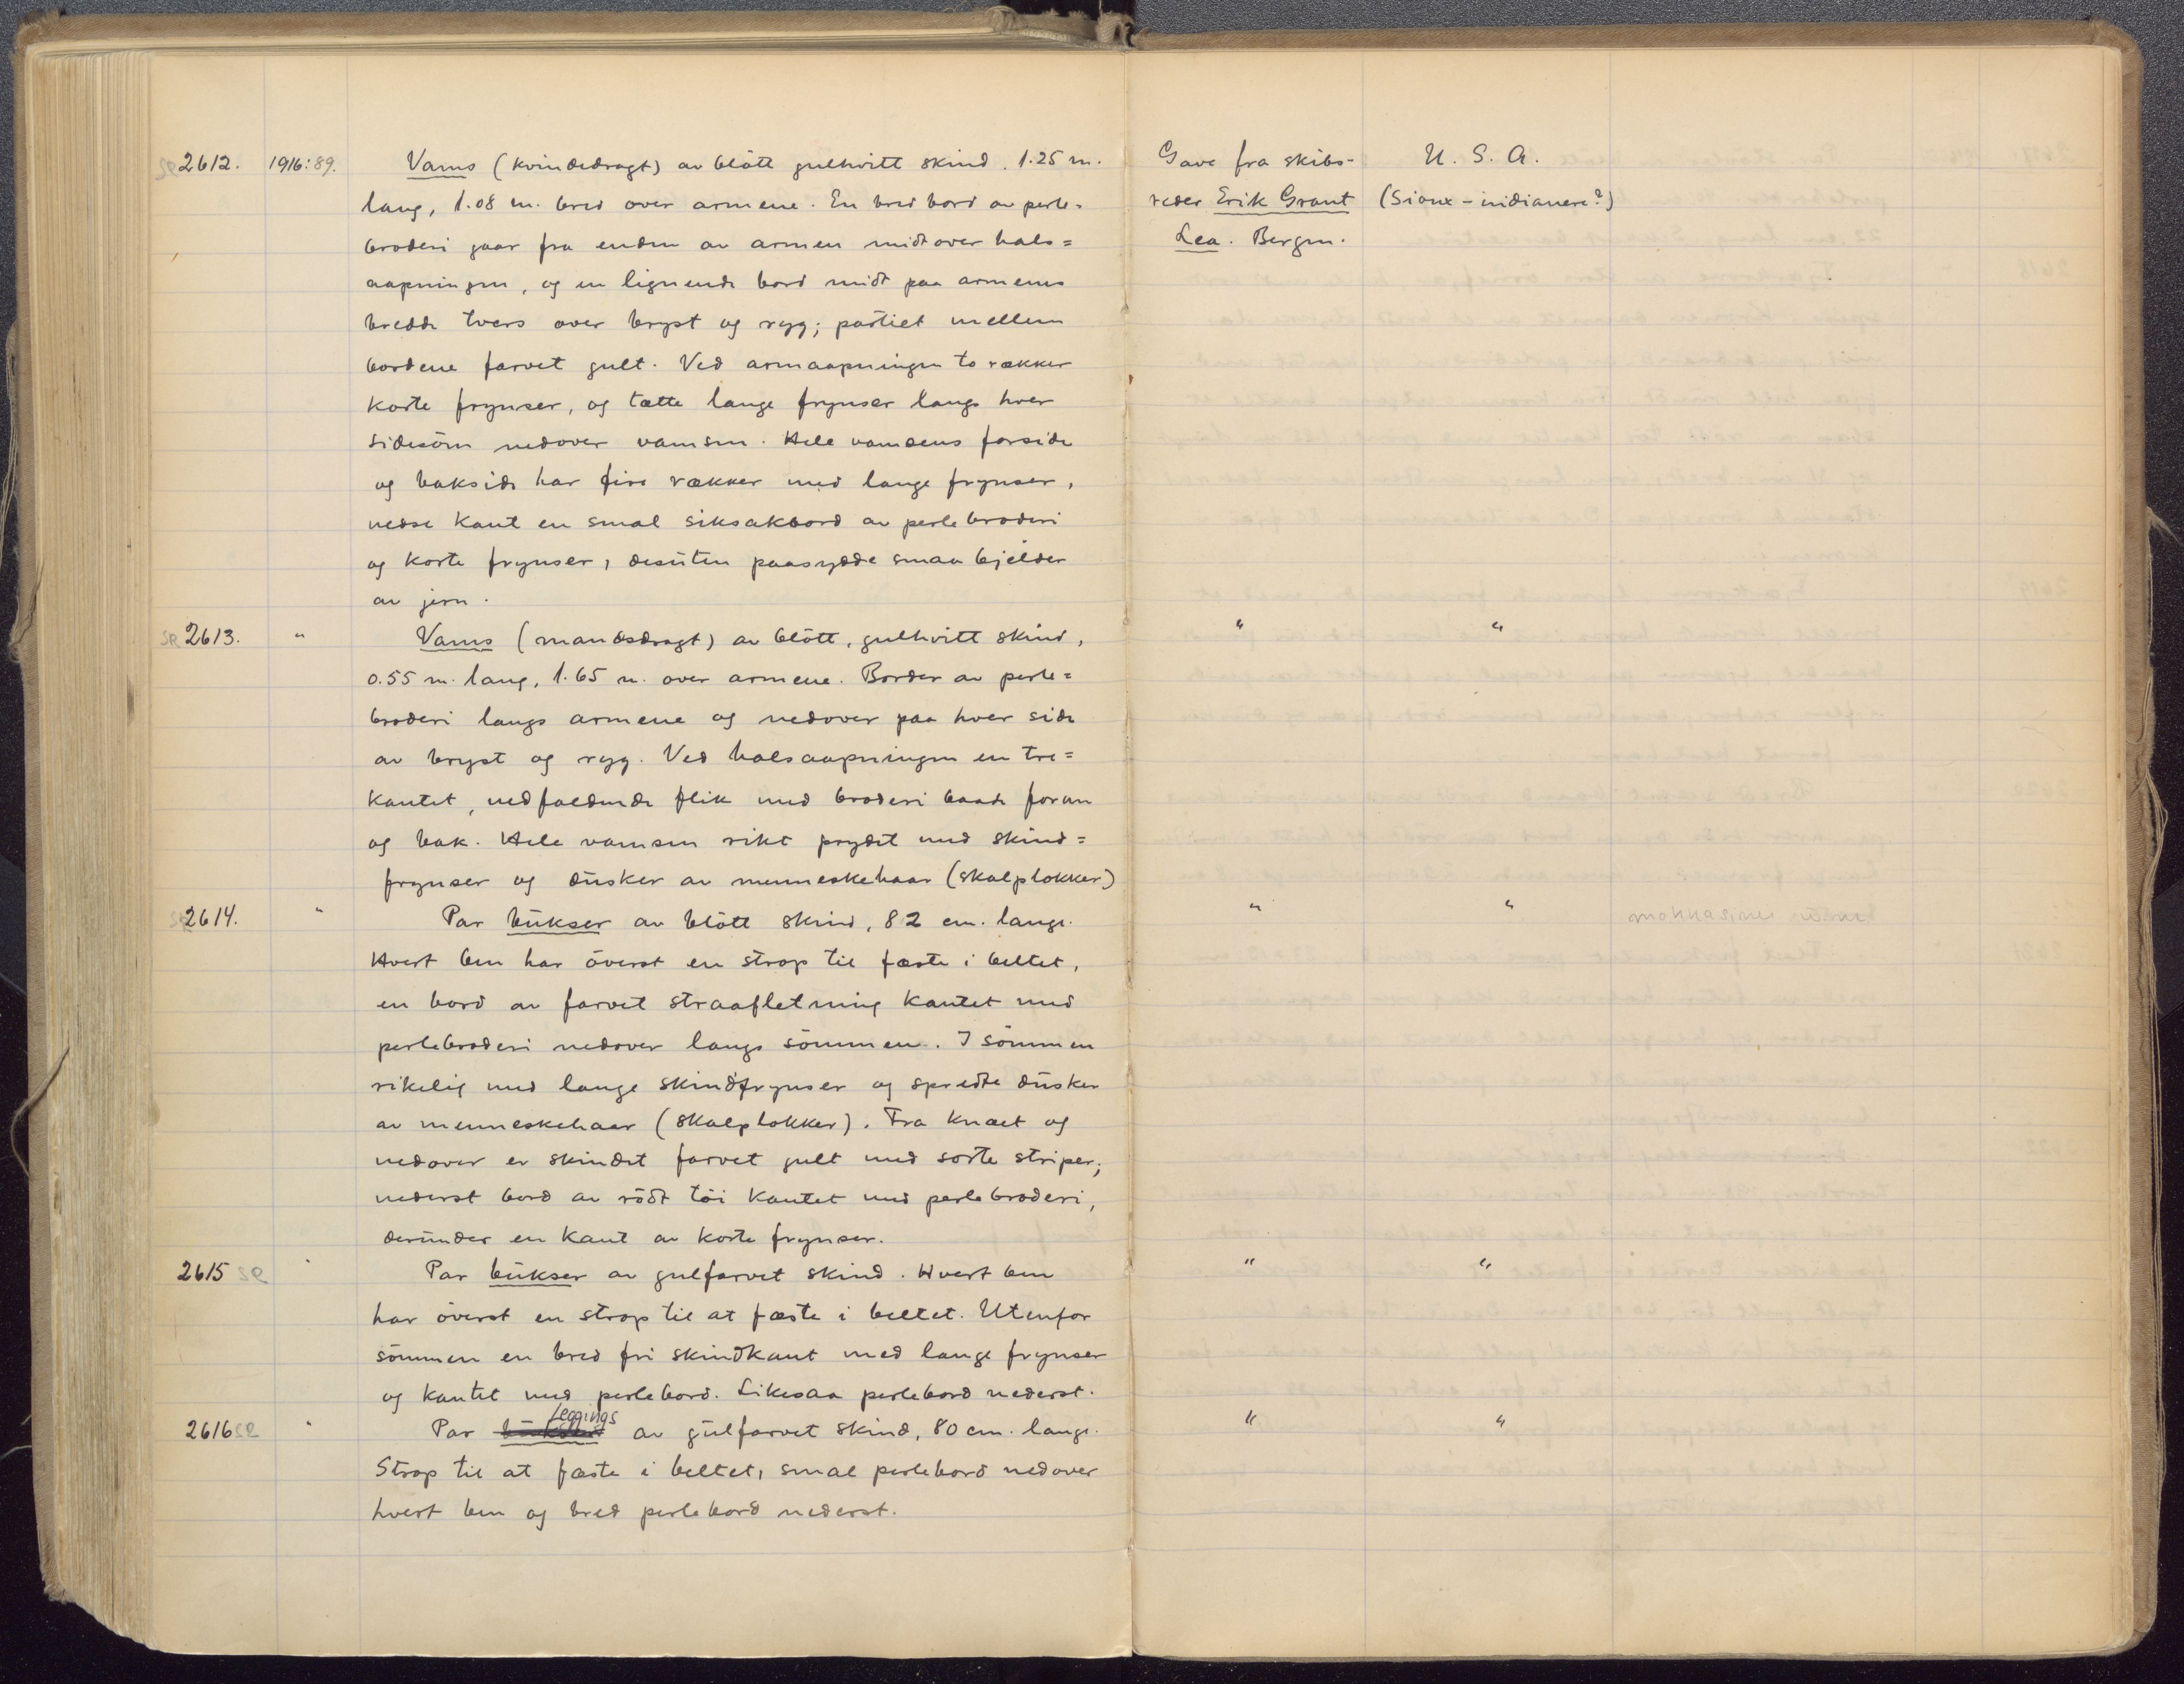 SR 2612. 1916:89. Vams (kvindedragt) av blött gulhvitt skind. 1.25 m. Gave fra skibs- U. S. A.
lang, 1.08 m. bred over armene. En bred bord av perle= reder Erik Grant (Sioux-indianere?)
broderi gaar fra enden av armen midt over hals= Lea. Bergen.
aapningen, og en lignende bord midt paa armenes
bredde tvers over bryst og ryg; partiet mellem
bordene farvet gult. Ved armaapningen to rækker
korte frynser, og tætte lange frynser langs hver
sidesöm nedover vamsen. Hele vamsens forside
og bakside har fire rækker med lange frynser,
nedre kant en smal siksakbord av perlebroderi
og korte frynser, desuten paasydde smaa bjelder
av jern.
SR 2613. " Vams (mandsdragt) av blött, gulhvitt skind, " "
0.55 m. lang, 1.65 m. over armene. Border av perle=
broderi langs armene og nedover paa hver side
av bryst og ryg. Ved halsaapningen en tre=
kantet, nedfaldende flik med broderi baade foran
og bak. Hele vamsen rikt prydet med skind=
frynser og dusker av menneskehaar (skalplokker)
SR 2614. " Par bukser av blött skind, 82 cm. lange. " " mokkasiner
Hvert ben har överst en strop til fæste i beltet,
en bord av farvet straafletning kantet med
perlebroderi nedover langs sömmen. I sömmen
rikelig med lange skindfrynser og spredte dusker
av menneskehaar (skalplokker). Fra knæet og
nedover er skindet farvet gult med sorte striper;
nederst bord av rödt töi kantet med perlebroderi,
derunder en kant av korte frynser.
2615 SR " Par bukser av gulfarvet skind. Hvert ben " "
har överst en strop til at fæste i beltet. Utenfor
sömmen en bred fri skindkant med lange frynser
og kantet med perlebord. Likesaa perlebord nederst.
Leggings
2616 SR " Par bukser av gulfarvet skind, 80 cm. lange. " "
Strop til at fæste i beltet, smal perlebord nedover
hvert ben og bred perlebord nederst.